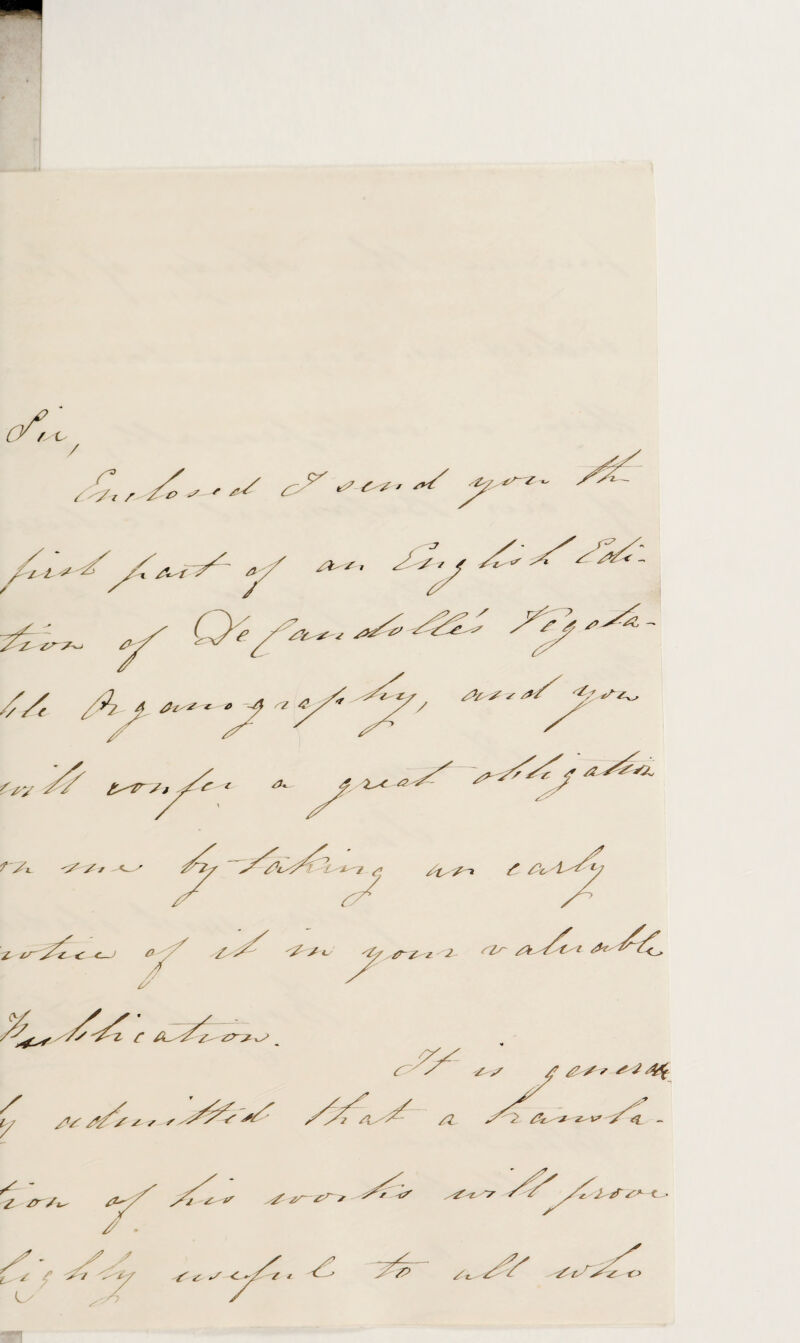 Sir,
Enclosed I send you the
first part of an English Edi-
tion of DeCandolle's Vegeta-
ble Organography, and you
will confer a great obligation
on me by taking an early
notice of it in your valuable
Publication.
It is general
ly admitted that a transla-
tion of his works will prove
highly useful to all who